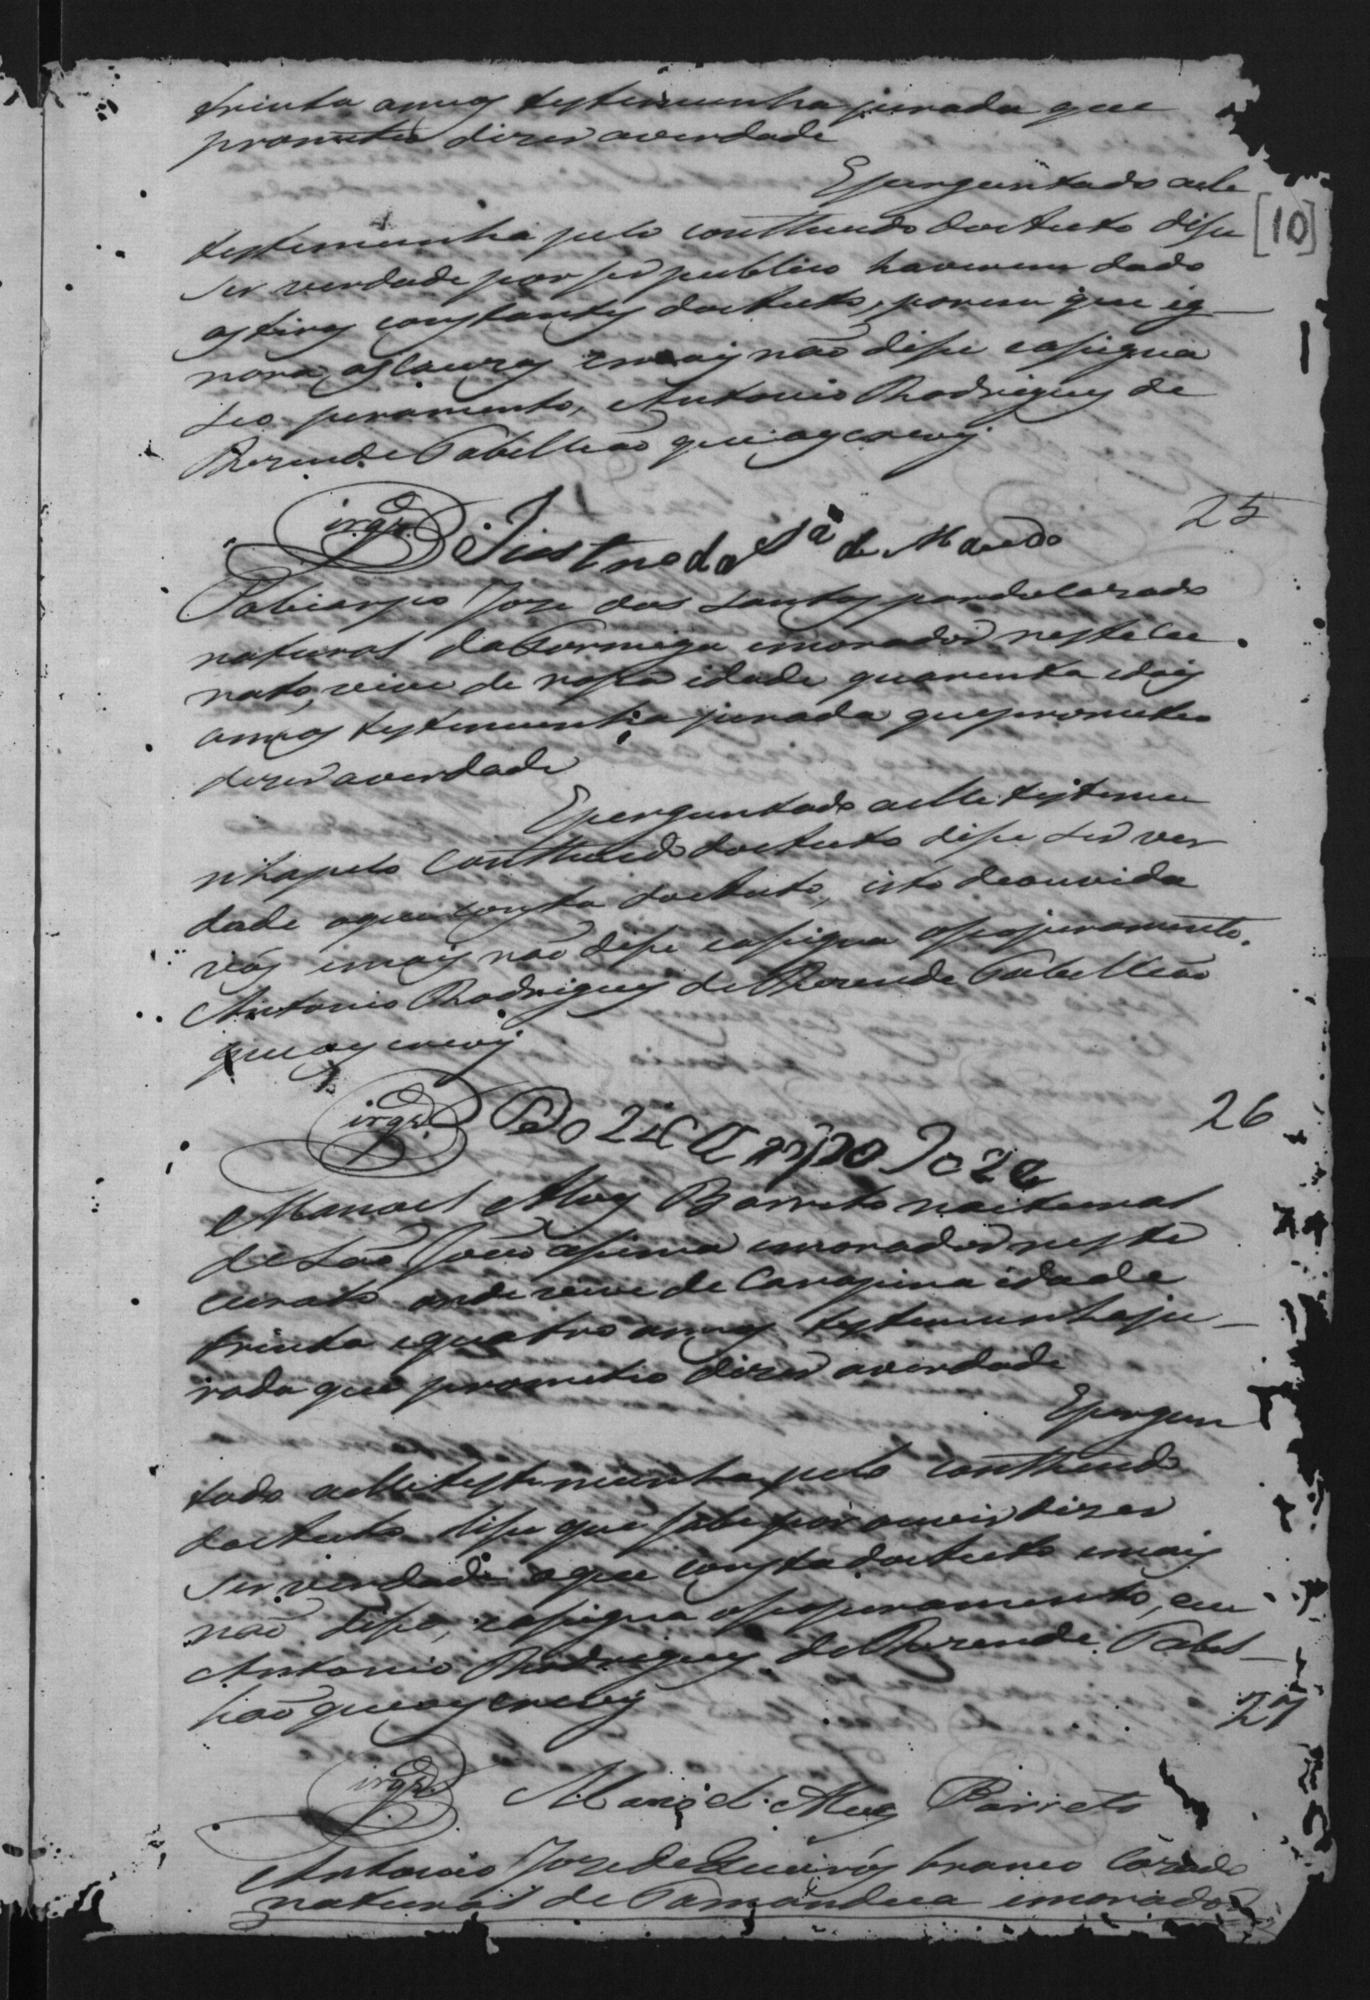 trinta annos testemunha jurada que
prometeo dizer averdade
E perguntado aelle
[10]
testemunha pelo conttheudo doAuto dise
ser verdade por ser publico haverem dado
os tiros constantes doAuto, porem que ig-
nora as cauzas emais não dise easigna
seo juramento, Antonio Rodrigues de
Rezende Tabelliao que oescrevy
25
Justno da Sa de Macedo
Policarpio Joze dos Santos pardo Cazado
natural da Formiga emorador neste Cu
rato, vive de rosa idade quarenta edois
annos testemunha jurada que prometeo
dizer averdade
E perguntado aelle testemu
nha pelo Conttheudo doAuto dise ser ver
dade oque consta doAuto, isto de ouvida
vós emais não dise easigna oseo juramento.
Antonio Rodrigues de Rezende Tabellião
que oescrevy
26
Policarpo Joze
Manoel Alves Barreto natural
de São João asima emorador neste
curato onde vive de Carapina idade
trinta equatro annos testemunha ju-
rada que prometeo dizer averdade
E pergun
tado aelle testemunha pelo conttheudo
doAuto dise que sabe por ouvir dizer
ser verdade oque consta doAuto emais
não dise, easigna oseo juramento, eu
Antonio Rodrigues de Rezende Tabel-
lião que oescrevy
27
Manoel Alves Barreto
Antonio Joze de Queirós branco Cazado
natural de Tamandua emorador